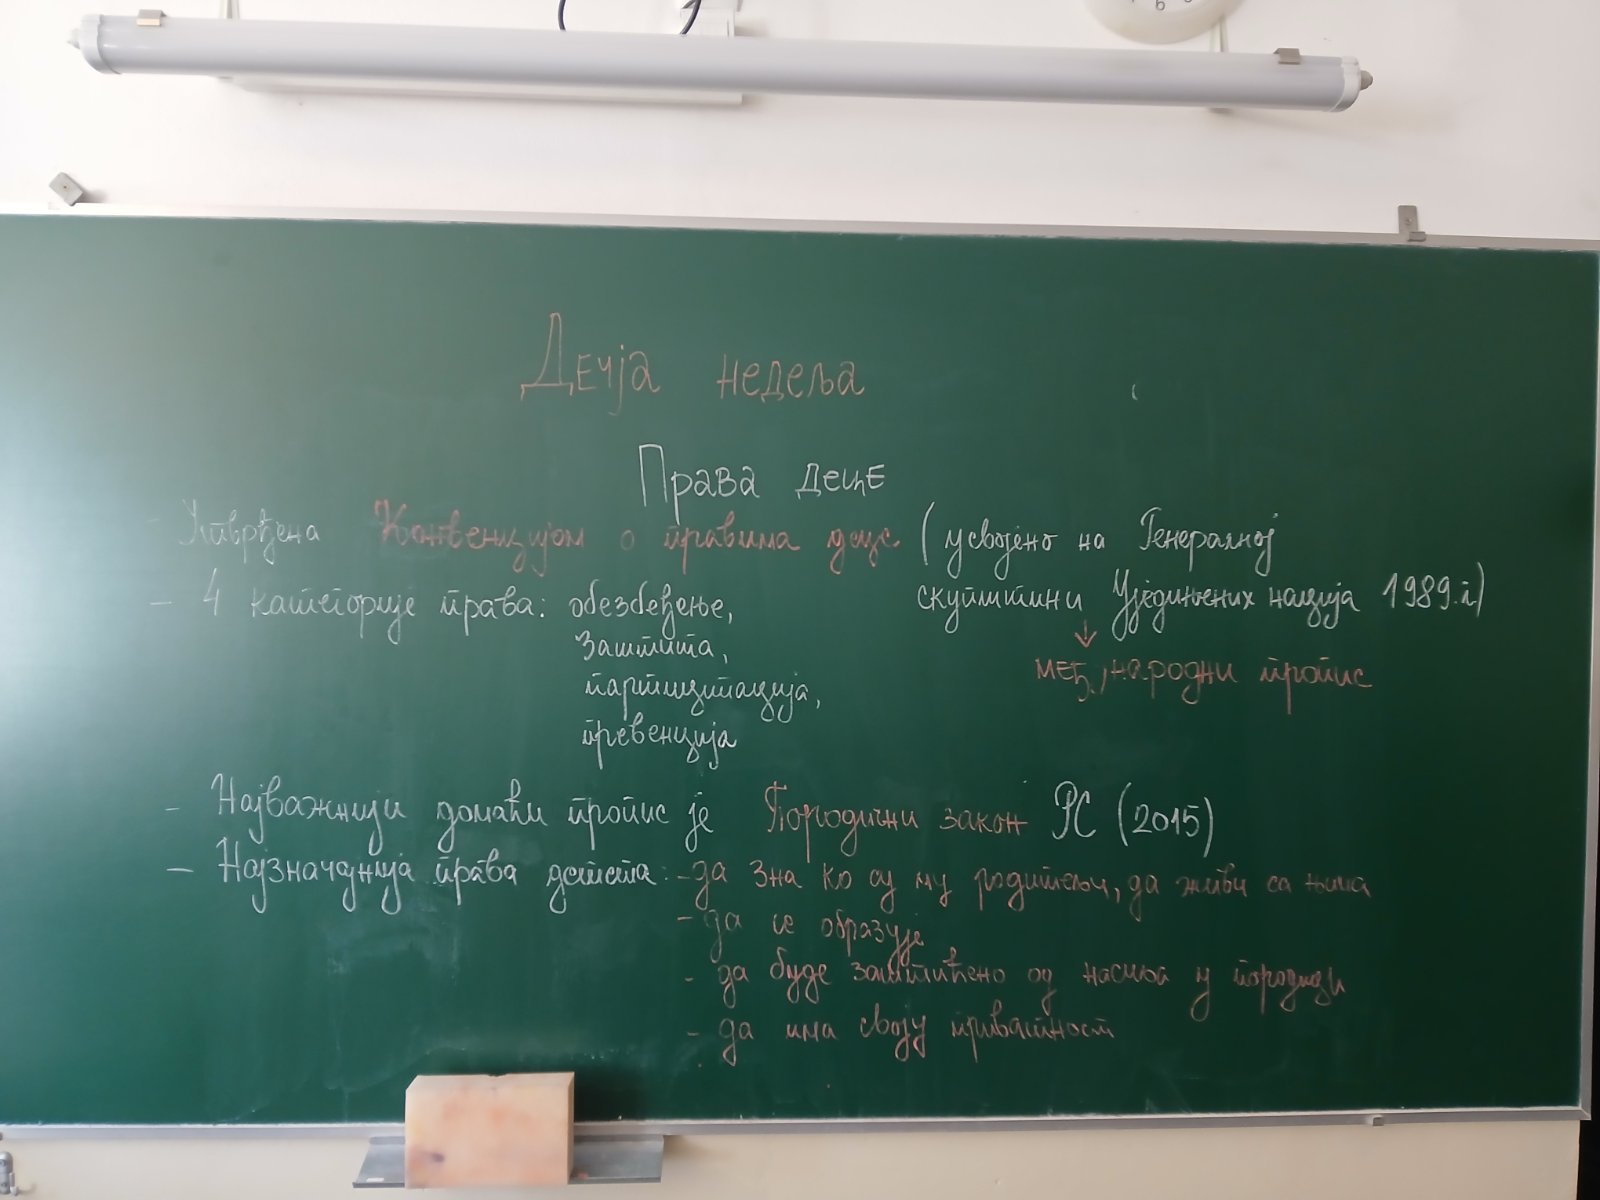 Дечја недеља
Права деце
- Утврђена Конвенцијом о правима деце (усвојено на Генералној
скупштини Уједињених нација 1989.г)
↓
међународни пропис
- 4 категорије права: обезбеђење,
заштита,
партиципација,
превенција
- Најважнији домаћи пропис је Породични закон РС (2015)
- Најзначајнија права детета: - да зна ко су му родитељи, да живи са њима
- да се образује
- да буде заштићено од насиља у породици
- да има своју приватност